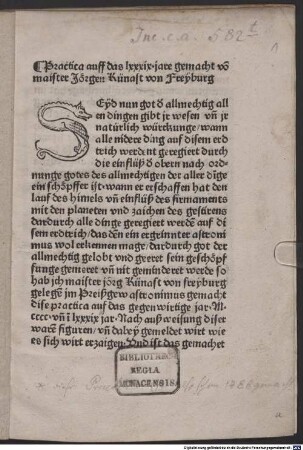 Inc. c. a. 582 t
1
¶Practica auff das lxxxix·jare gemacht võ
maister Jörgen Künast von Freyburg
SEyd nun got d allmechtig all
en dingen gibt jr wesen vñ jr
natürlich würckunge/wann
alle nidere ding auff disem erd
trich werdent geregiert durch
die einflüß d obern nach ord-
nunge gotes des allmechtigen der aller dige
ein schöpffer ist·wann er erschaffen hat den
lauf des himels vñ einflüß des firmaments
mit den planeten vnd zaichen des gestirens
dardurch alle dinge geregiert werdẽ auff di
sem erdtrich/das dẽn ein ergrinnter astroni
mus wol erkennen mage/dardurch got der
allmechtig gelobt vnd geeret sein geschöpf
funge gemeret vñ nit geminderet werde so
hab jch maister jörg Künast von freyburg
gelegẽ jm Preißgew astronimus gemacht
dise practica auff das gegenwirtige jar·M·
cccc·vñ i lxxxix jar·Nach außweisung diser
warẽ figuren/vñ dabey gemeldet wirt wie
es sich wirt erzaigen·Vnd ist das gemachet
BIBLIOTHECA
REGIA
MONACENSIS
a
Digitalisierung gefördert durch die Deutsche Forschungsgemeinschaft